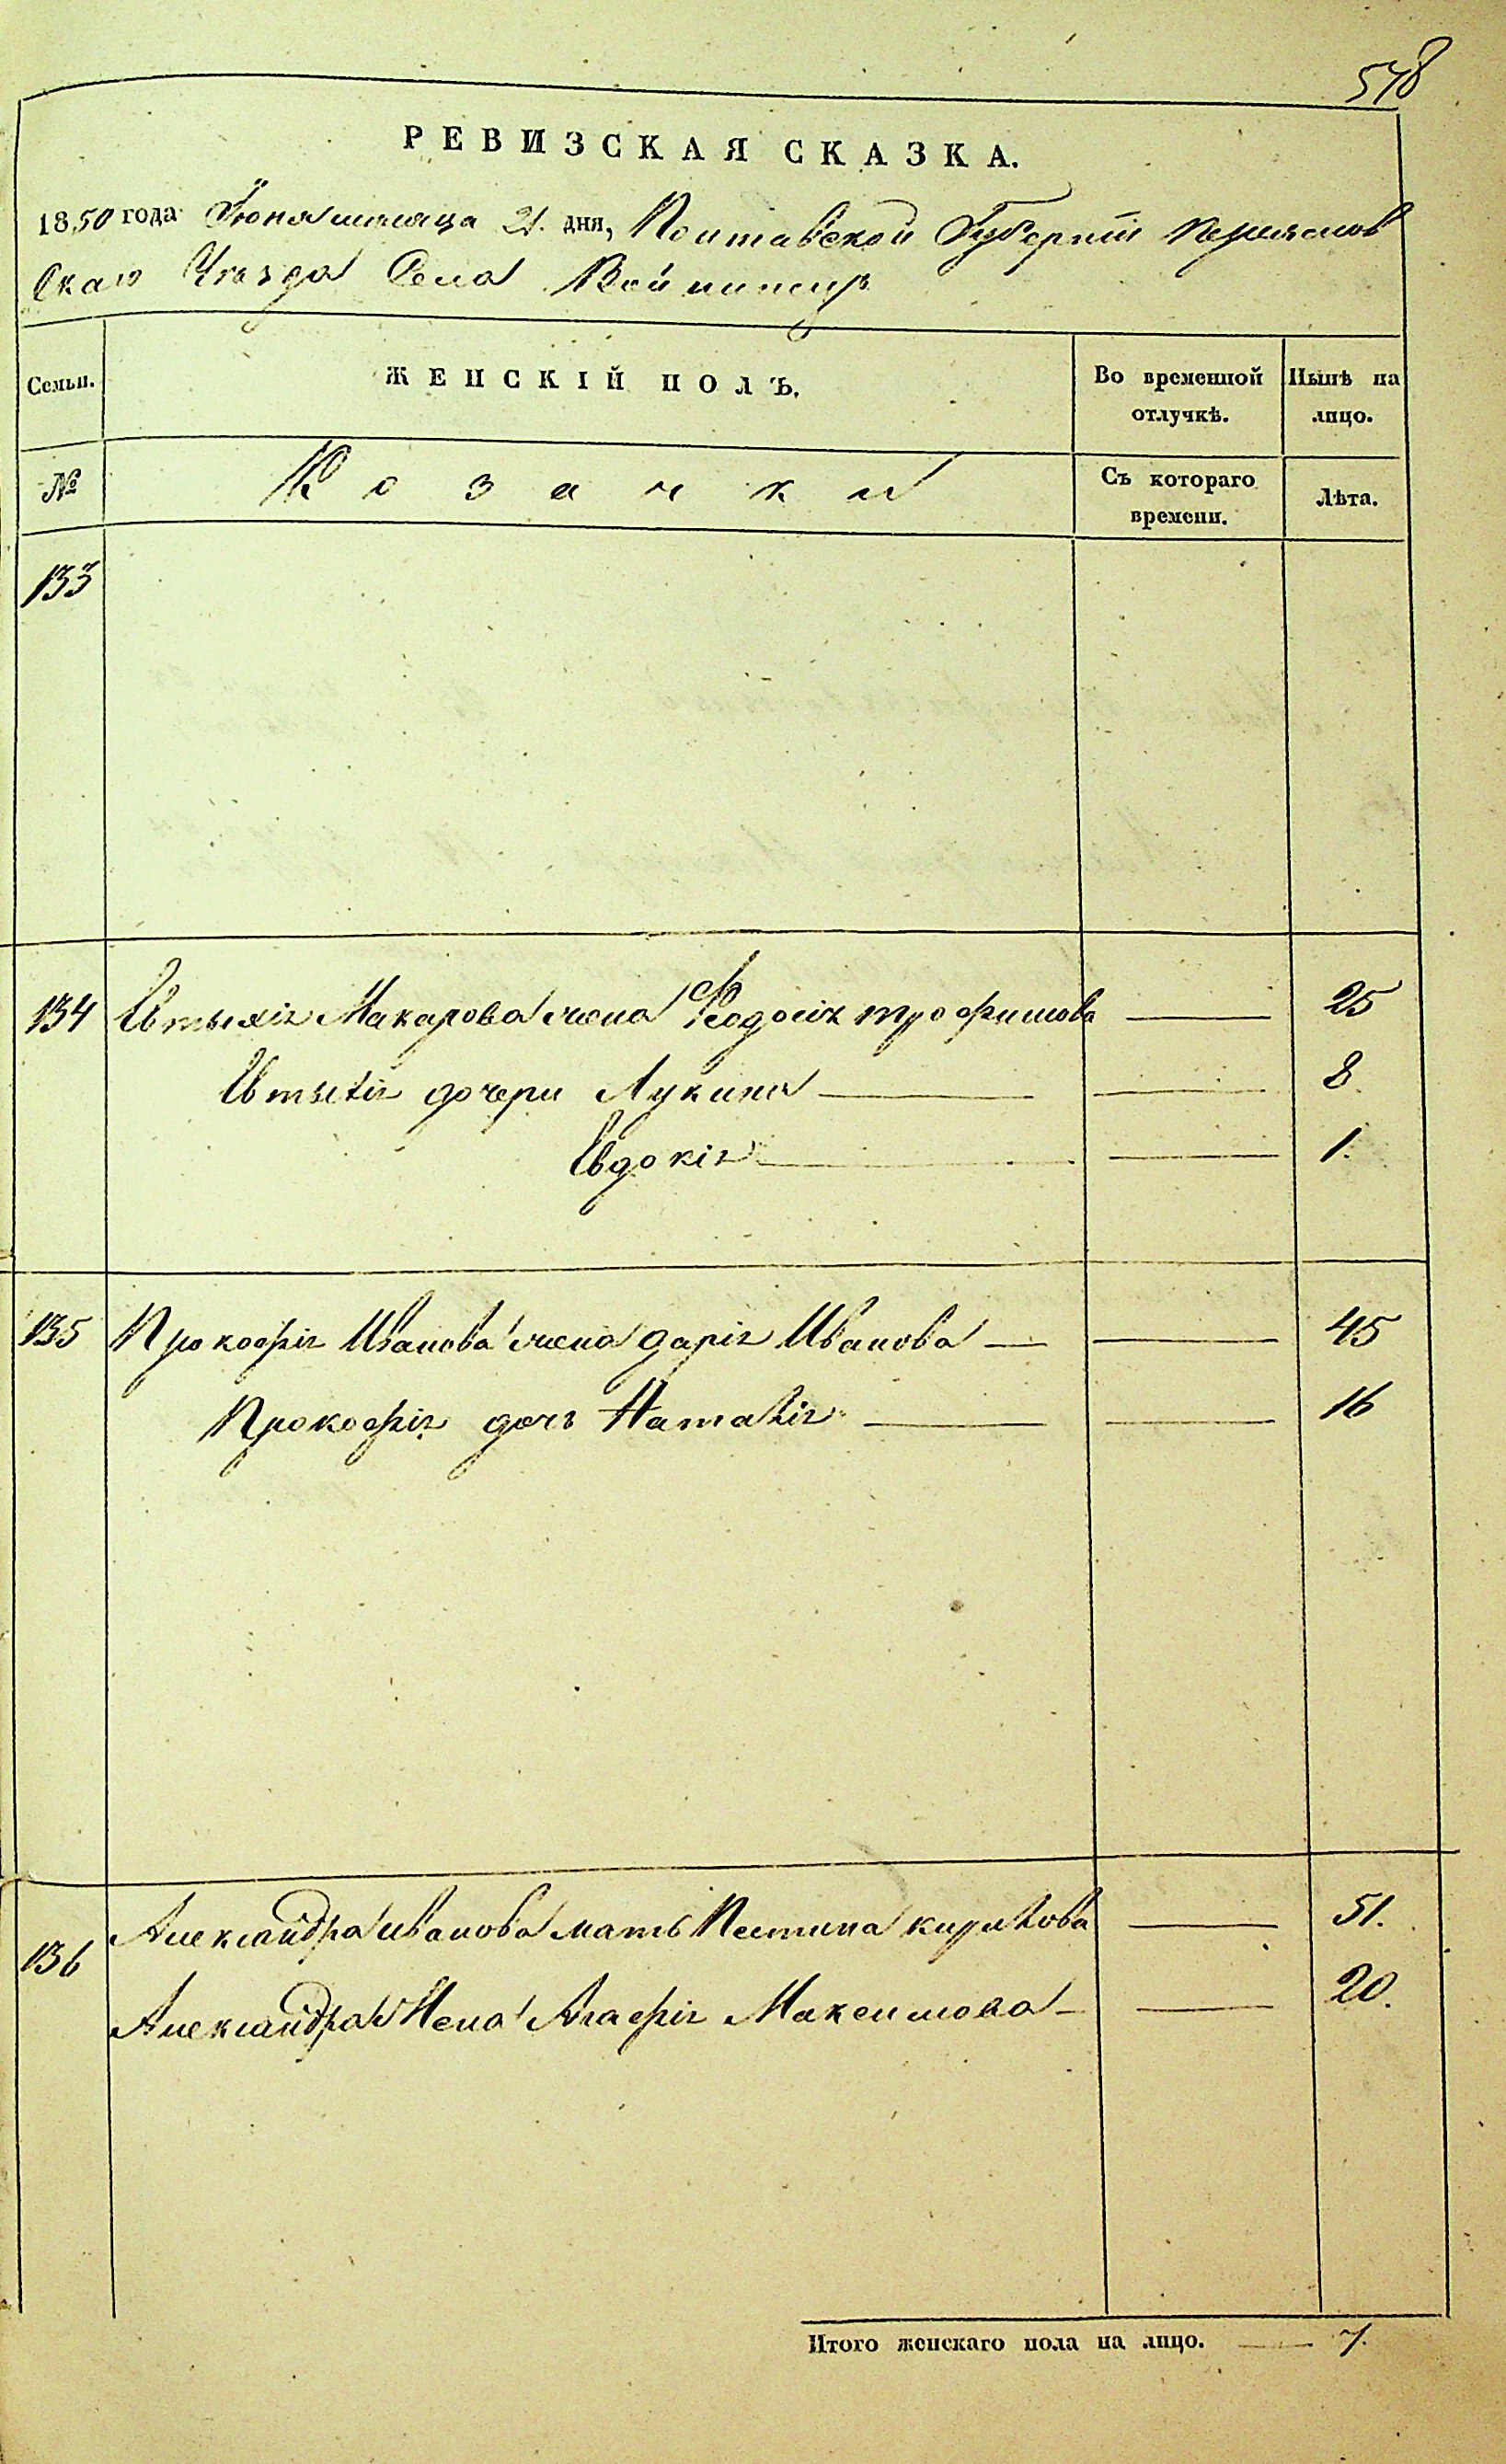 548
РЕВИЗСКАЯ СКАЗКА.
1850 года Іюня месяца 21. дня, Полтавской Губерніи Переяслов
скаго Уезда Села Войтинцу
Семьи. ЖЕНСКІЙ ПОЛЪ. Во временной отлучкѣ. Нынѣ на лицо.
№ Козачки Съ котораго времени. Лѣта.
133
134 Евтихія Макарова жена Феодосія трофимова 25
Евтихія дочери Лукина 8
Евдокія 1.
135 Прокофія Иванова жена дарія Иванова — 45
Прокофія дочь Наталія 16
136 Александра иванова мать Устина кирилова 51.
Александра Жена Агафія Максимова — 20.
Итого женскаго пола на лицо. — 7.